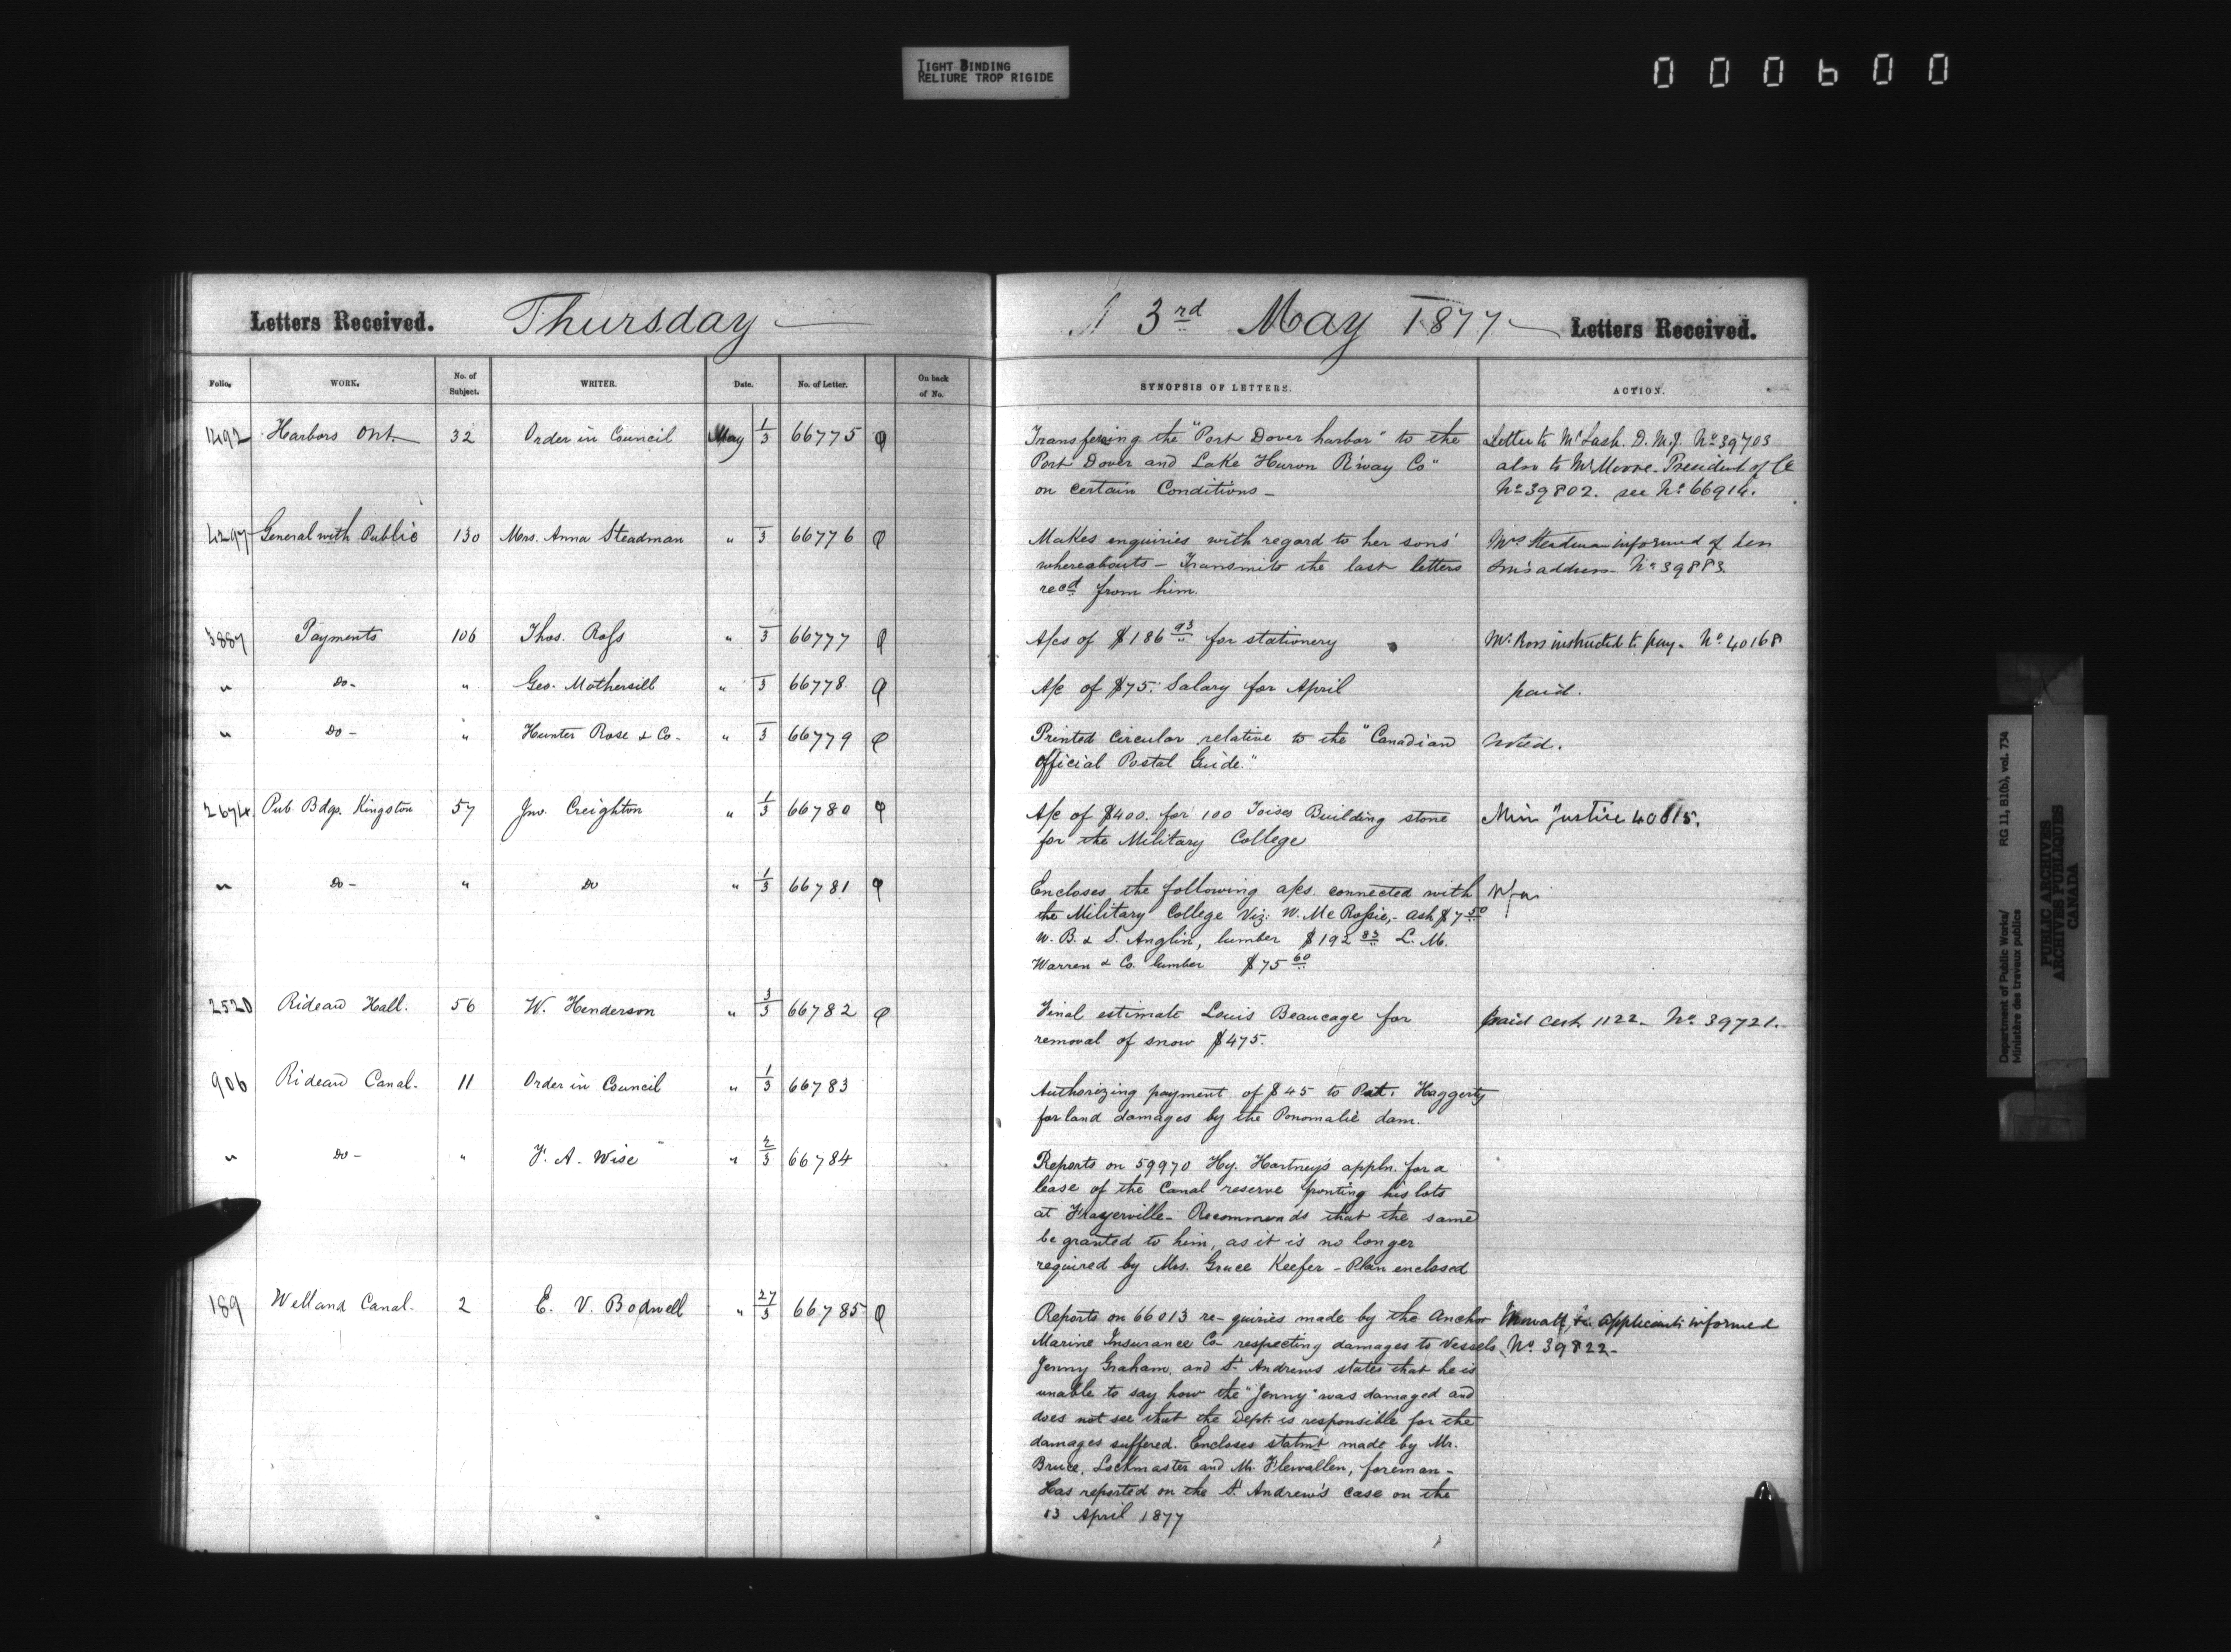 TIGHT BINDING
RELIURE TROP RIGIDE
000600
Letters Received. Thursday
3rd May 1877 Letters Received.
Folio. WORK. No. of Subject. WRITER. Date. No. of Letter. On back of No.
SYNOPSIS OF LETTERS. ACTION.
1492 Harbors Ont. 32 Order in Council May 1/3 66775
Transfering the "Port Dover harbor" to the
Port Dover and Lake Huron R'way Co"
on certain Conditions -
Letter to Mr Lash. D.M.J. No 39703
also to Mr Moore. President of Co
No 39802. see No 66914.
4297 General with Public 130 Mrs. Anna Steadman " 3 66776
Makes enquiries with regard to her sons'
whereabouts - Transmits the last letters
recd from him.
Mrs Steadman informed of her
son's address No 39883.
3887 Payments 106 Thos. Ross " 3 66777
A/cs of $186 93 for stationery
Mr. Ross instructed to pay. No. 40168
" Do- " Geo. Mothersill " 3 66778
A/c of $75. Salary for April
paid.
" Do- " Hunter Rose & Co. " 3 66779
Printed Circular relative to the "Canadian
Official Postal Guide."
Noted.
2674 Pub. Bdgs. Kingston 57 Jno. Creighton " 1/3 66780
A/c of $400. for 100 Toises Building stone
for the Military College
Min Justice 40815.
" Do- " Do " 1/3 66781
Encloses the following a/cs. connected with
the Military College Viz: W. McRossie,- ash $7 50
W. B. & S. Anglin, lumber $192 83 L. M.
Warren & Co. lumber $75 60
2520 Rideau Hall. 56 W. Henderson " 3/3 66782
Final estimate Louis Beaucage for
removal of snow $475.
paid cert. 1122. No. 39721.
906 Rideau Canal. 11 Order in Council " 1/3 66783
Authorizing payment of $45 to Pat. Haggerty
for land damages by the Ponomalie dam.
" Do- " F. A. Wise " 2/3 66784
Reports on 59970 Hy. Hartney's appln. for a
lease of the Canal reserve fronting his lots
at Frayerville - Recommends that the same
be granted to him, as it is no longer
required by Mrs. Grace Keefer - Plan enclosed
189 Welland Canal. 2 E. V. Bodwell " 27/3 66785
Reports on 66013 re-quiries made by the Anchor
Marine Insurance Co respecting damages to Vessels
Jenny Graham, and St. Andrews states that he is
unable to say how the "Jenny" was damaged and
does not see that the Dept. is responsible for the
damages suffered. Encloses statmt made by Mr.
Bruce, Lockmaster and Mr. Flewallen, foreman -
Has reported on the St. Andrew's case on the
13 April 1877
applicants informed
No. 39822-
Department of Public Works/
Ministère des travaux publics
RG 11, B1(b), vol. 734
PUBLIC ARCHIVES
ARCHIVES PUBLIQUES
CANADA